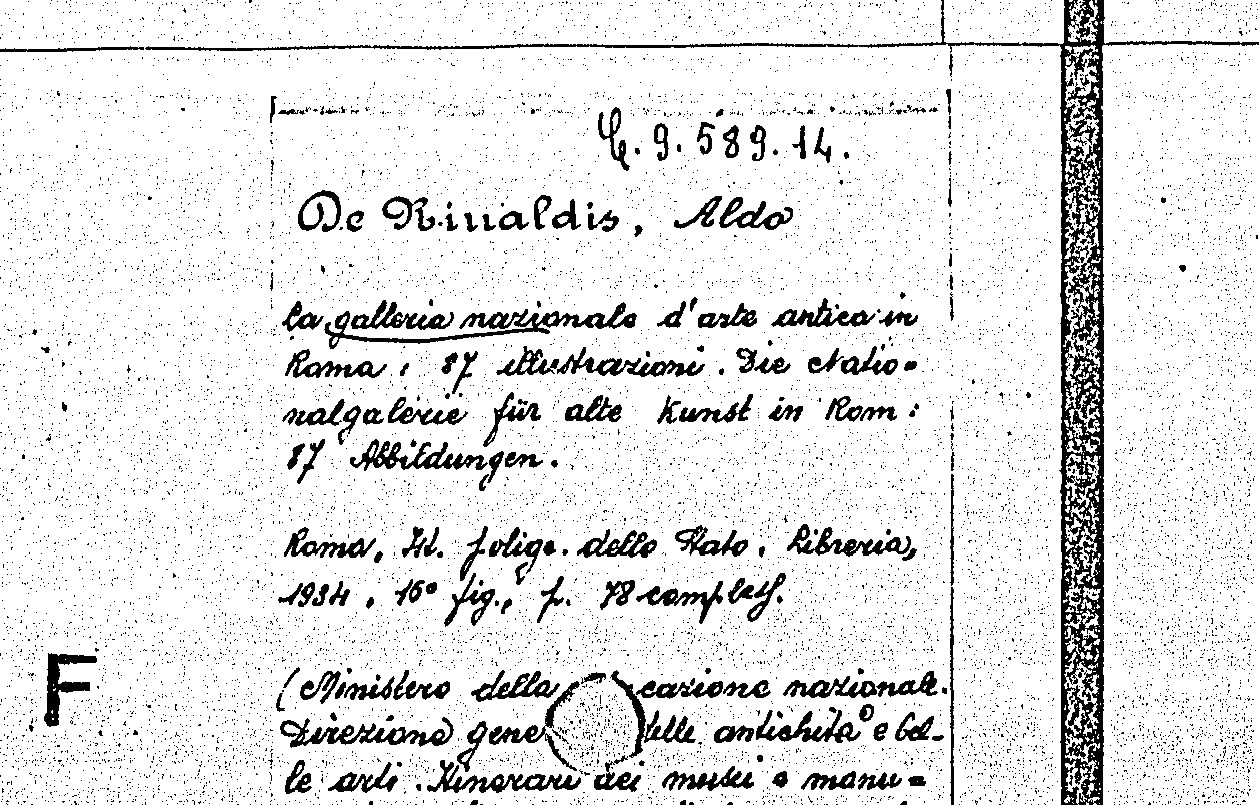 C. 9. 589. 14.
De Rinaldis, Aldo
La galleria nazionale d'arte antica in
Roma, 87 illustrazioni. Die Natio=
nalgalerie für alte Kunst in Rom:
87 Abbildungen.
Roma, Ist. poligr. dello Stato, Libreria,
1934, 16° fig., p. 78 compless.
F
(Ministero della cazione nazionale.
Direzione gene delle antichità e bel-
le arti. Itinerari dei musei e monu=